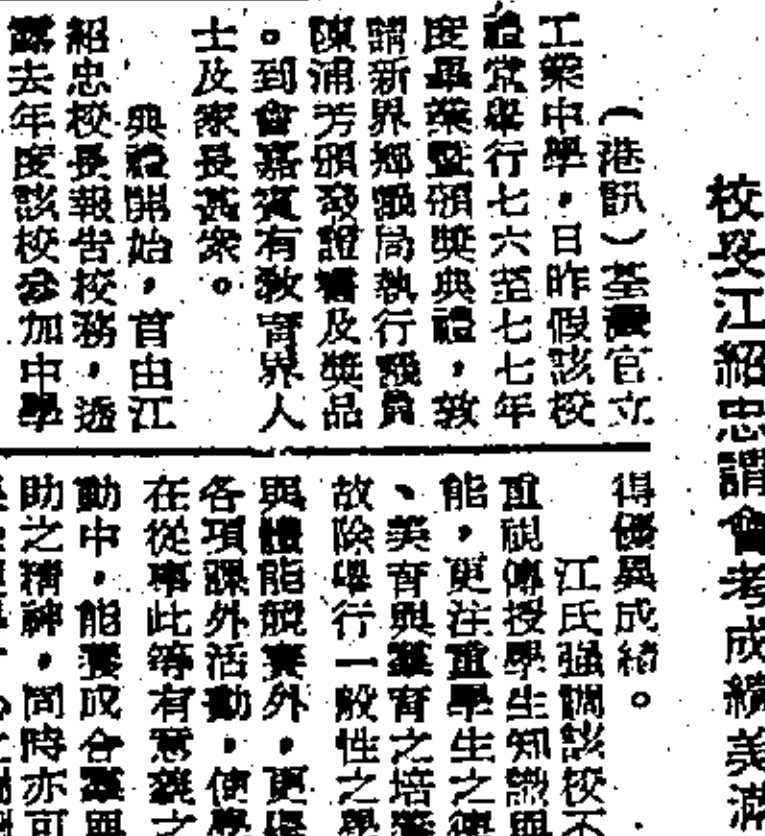 校長江紹忠謂會考成績美滿
（港訊）荃灣官立
工業中學，日昨假該校
禮堂舉行七六至七七年
度畢業暨頒獎典禮，敦
請新界鄉議局執行議員
陳浦芳頒發證書及獎品
。到會嘉賓有教育界人
士及家長甚衆。
典禮開始，首由江
紹忠校長報告校務，透
露去年度該校參加中學
得優異成績。
江氏強調該校不
重視傳授學生知識與
能，更注重學生之德
、美育與羣育之培養
故除舉行一般性之學
與體能競賽外，更
各項課外活動，使學
在從事此等有意義之
動中，能養成合羣與
助之精神，同時亦可